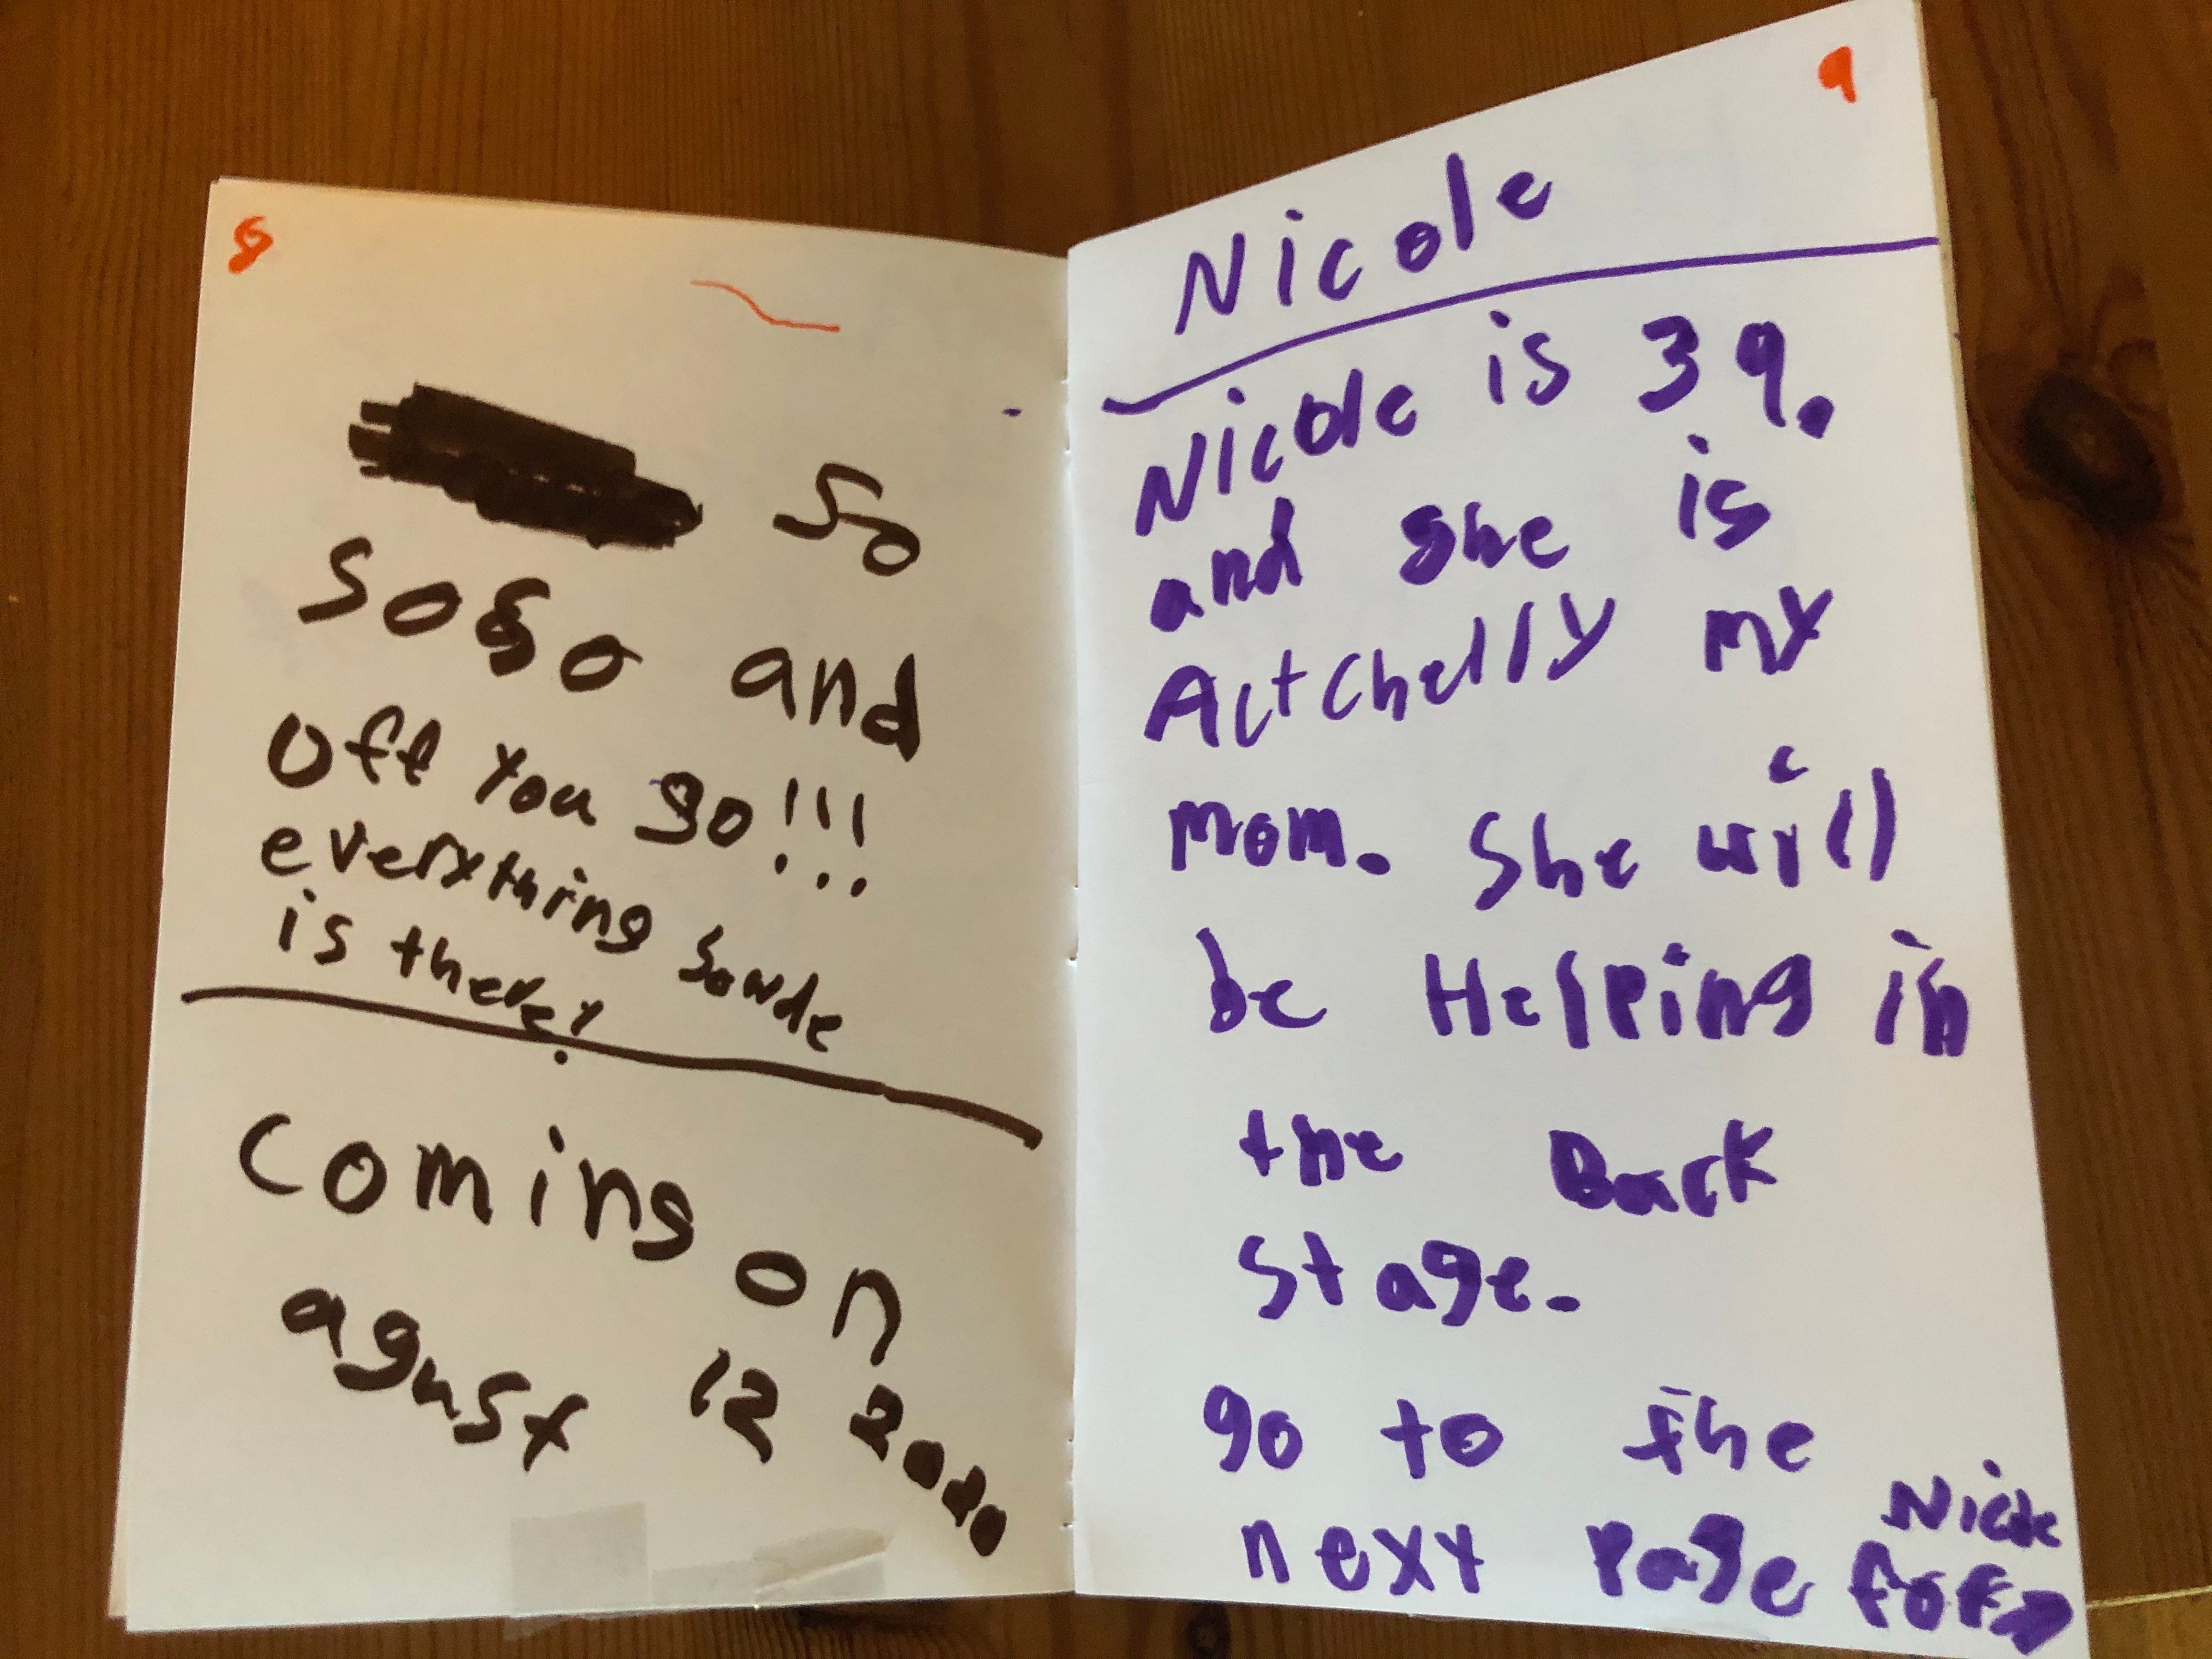 8
So
SoSo and
Off You go!!!
everything Sowde
is there!
Coming on
agust 12 2020
9
Nicole
Nicole is 39.
and She is
Actchelly my
mom. She will
be Helping in
the Back
stage.
go to the
next Page for